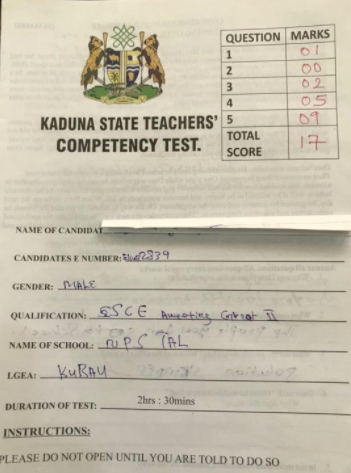 QUESTION MARKS
1 01
2 00
3 02
4 05
5 09
TOTAL SCORE 17
KADUNA STATE TEACHERS'
COMPETENCY TEST.
NAME OF CANDIDAT
CANDIDATES E NUMBER: 2839
GENDER: MALE
QUALIFICATION: SSCE Awaiting II
NAME OF SCHOOL:
LGEA: KUBAU
DURATION OF TEST: 2hrs : 30mins
INSTRUCTIONS:
PLEASE DO NOT OPEN UNTIL YOU ARE TOLD TO DO SO